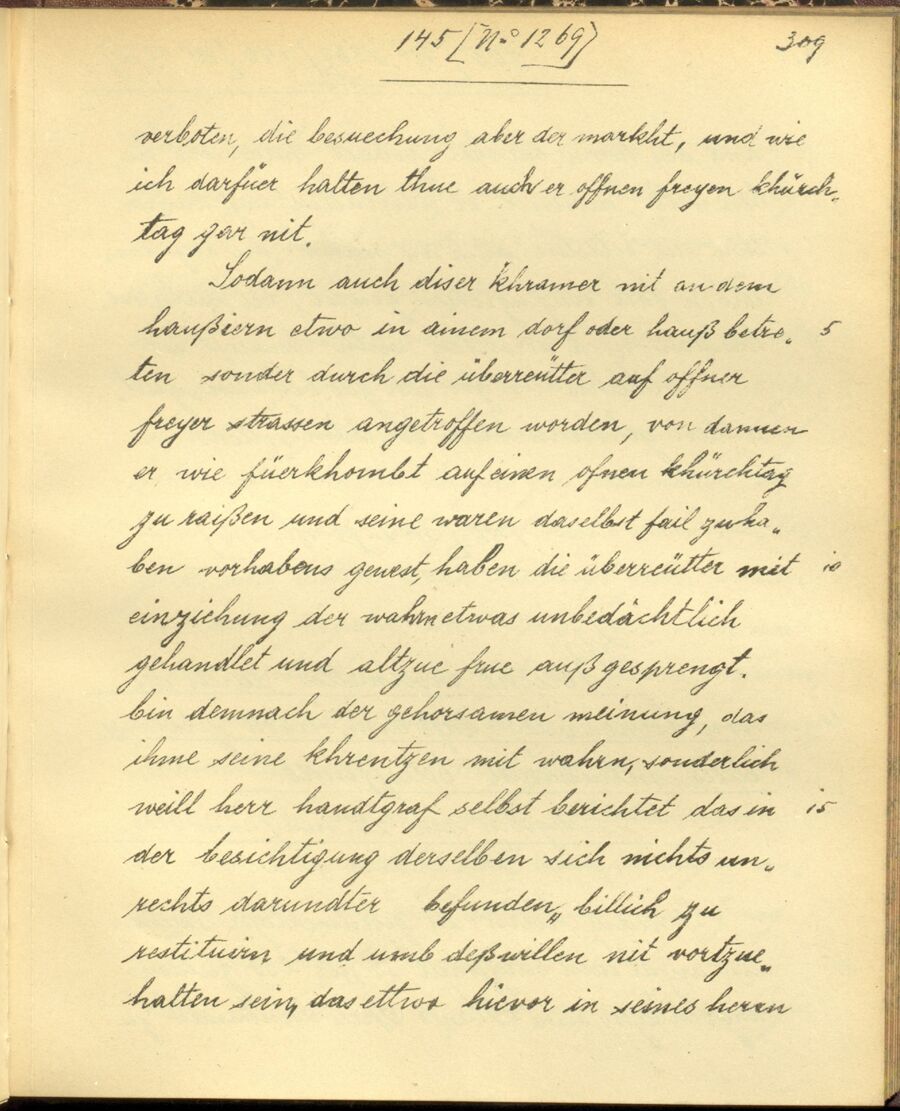 145 [N.o 1269] 309
verboten, die besuechung aber der markht, und wie
ich darfüer halten thue auch er offnen freyen khürch„
tag gar nit.
Sodann auch diser khramer nit an dem
haußiern etwo in ainem dorf oder hauß betre„ 5
ten sonder durch die überreütter auf offner
freyer strassen angetroffen worden, von dannen
er wie füerkhombt auf einen ofnen khürchtag
zu raißen und seine waren daselbst fail zu ha„
ben vorhabens gewest, haben die überreütter mit 10
einziehung der wahrn etwas unbedächtlich
gehandlet und altzue frue außgesprengt.
bin demnach der gehorsamen meinung, das
ihme seine khrentzen mit wahrn, sonderlich
weill herr handtgraf selbst berichtet das in 15
der besichtigung derselben sich nichts un„
rechts darundter befunden„ billich zu
restituirn und umb deßwillen nit vortzue„
halten sein, das ettwo hievor in seines herrn